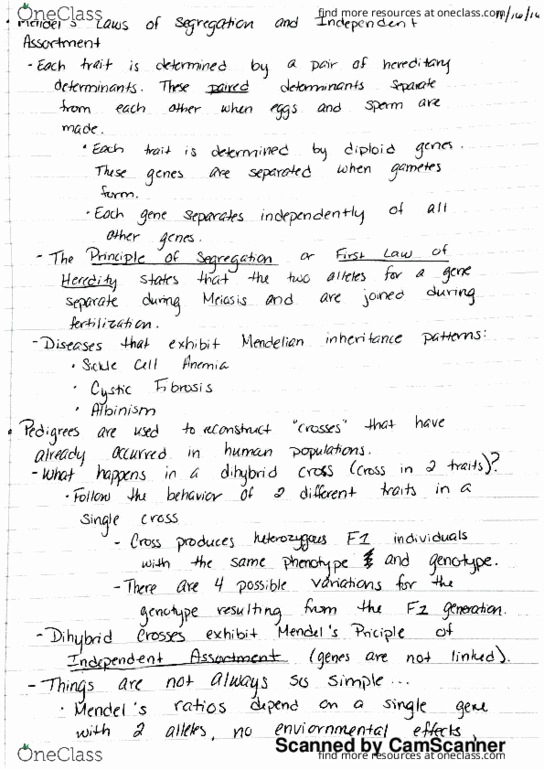 OneClass
find more resources at oneclass.com
• Mendel's Laws of Segregation and Independent
Assortment
- Each trait is determined by a pair of hereditary
determinants. These paired determinants separate
from each other when eggs and sperm are
made.
• Each trait is determined by diploid genes.
These genes are separated when gametes
form.
• Each gene separates independently of all
other genes.
- The Principle of Segregation or First Law of
Heredity states that the two alleles for a gene
separate during Meiosis and are joined during
fertilization.
- Diseases that exhibit Mendelian inheritance patterns:
• Sickle Cell Anemia
• Cystic Fibrosis
• Albinism
• Pedigrees are used to reconstruct "crosses" that have
already occurred in human populations.
- What happens in a dihybrid cross (cross in 2 traits)?
• Follow the behavior of 2 different traits in a
single cross
- Cross produces heterozygous F1 individuals
with the same phenotype and genotype.
- There are 4 possible variations for the
genotype resulting from the F1 generation.
- Dihybrid Crosses exhibit Mendel's Priciple of
Independent Assortment (genes are not linked).
- Things are not always so simple...
• Mendel's ratios depend on a single gene
with 2 alleles, no enviornmental effects,
Scanned by CamScanner
OneClass
find more resources at oneclass.com